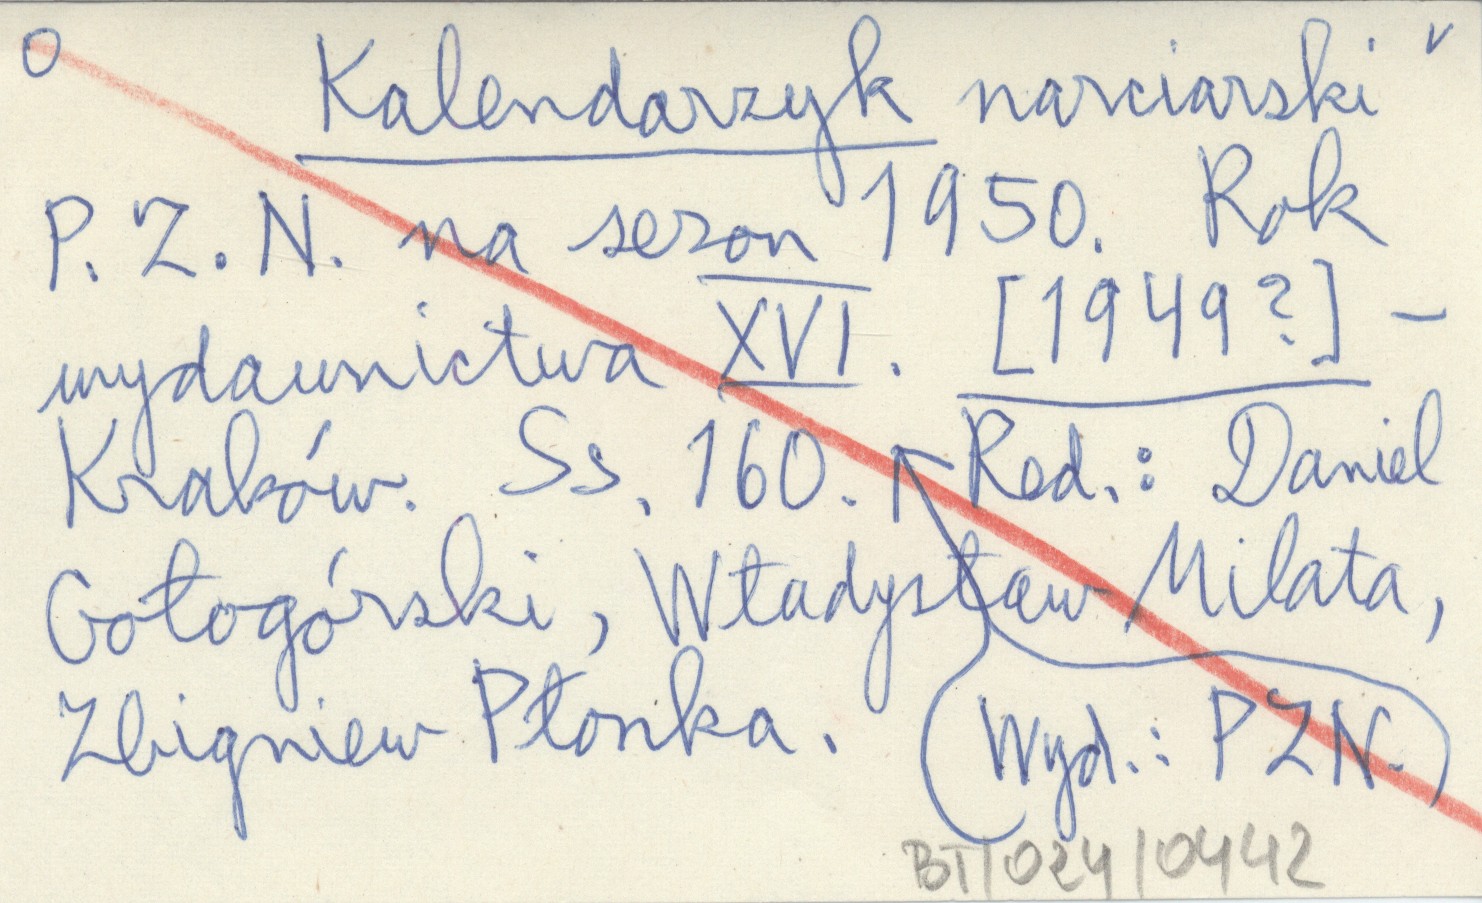 O Kalendarzyk narciarski v
P. Z. N. na sezon 1950. Rok
wydawnictwa XVI. [1949?] –
Kraków. Ss. 160. Red.: Daniel
Gołogórski, Władysław Milata,
Zbigniew Płonka. (Wyd.: PZN.)
BT/024/0442